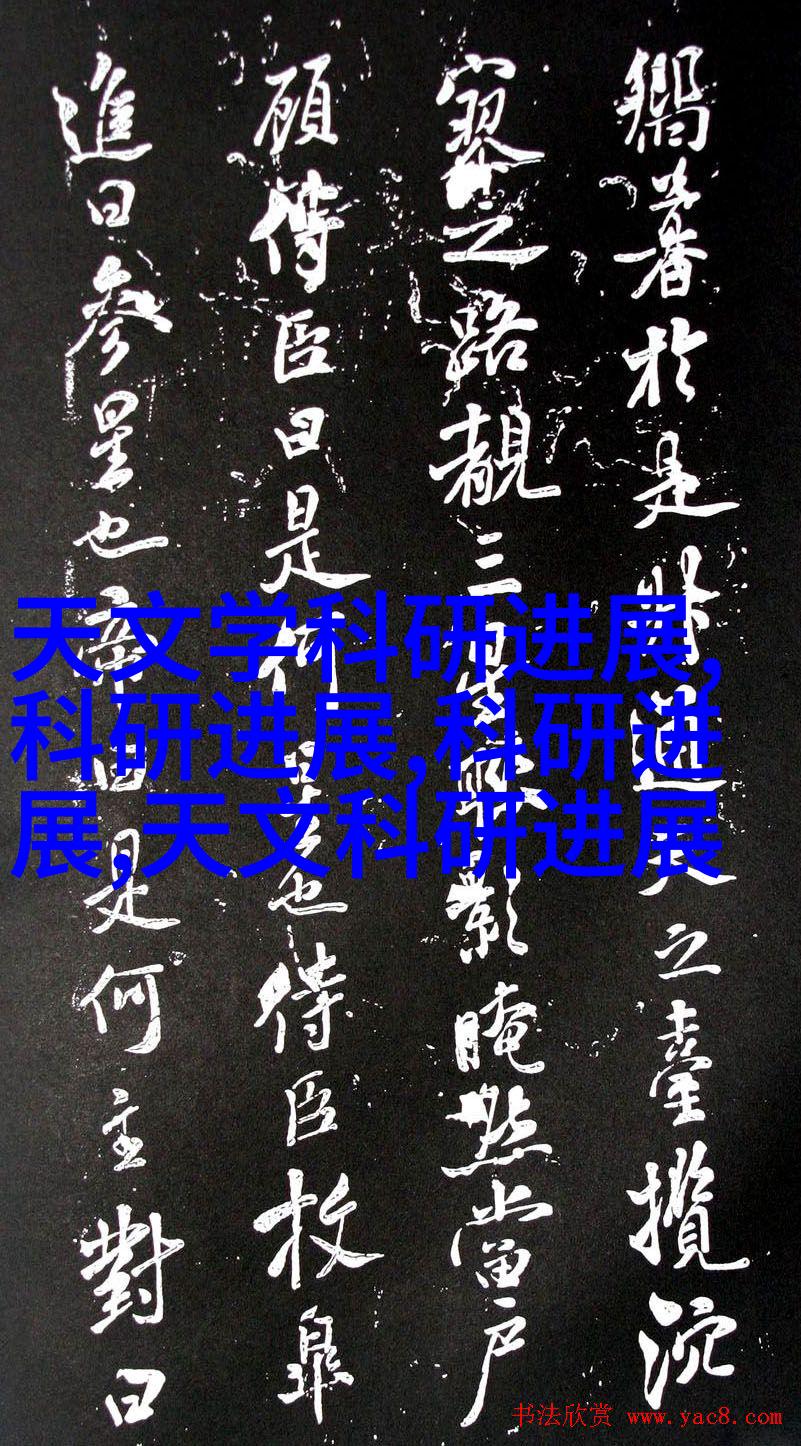 暑於是通天之臺攬沉
寥之路覩三星影晻然當戶
顧侍臣曰是何星也侍臣枚皋
進曰參星也帝曰是何主對曰
天文学科研进展,
科研进展,科研进
展,天文科研进展
书法欣赏 www.yac8.com